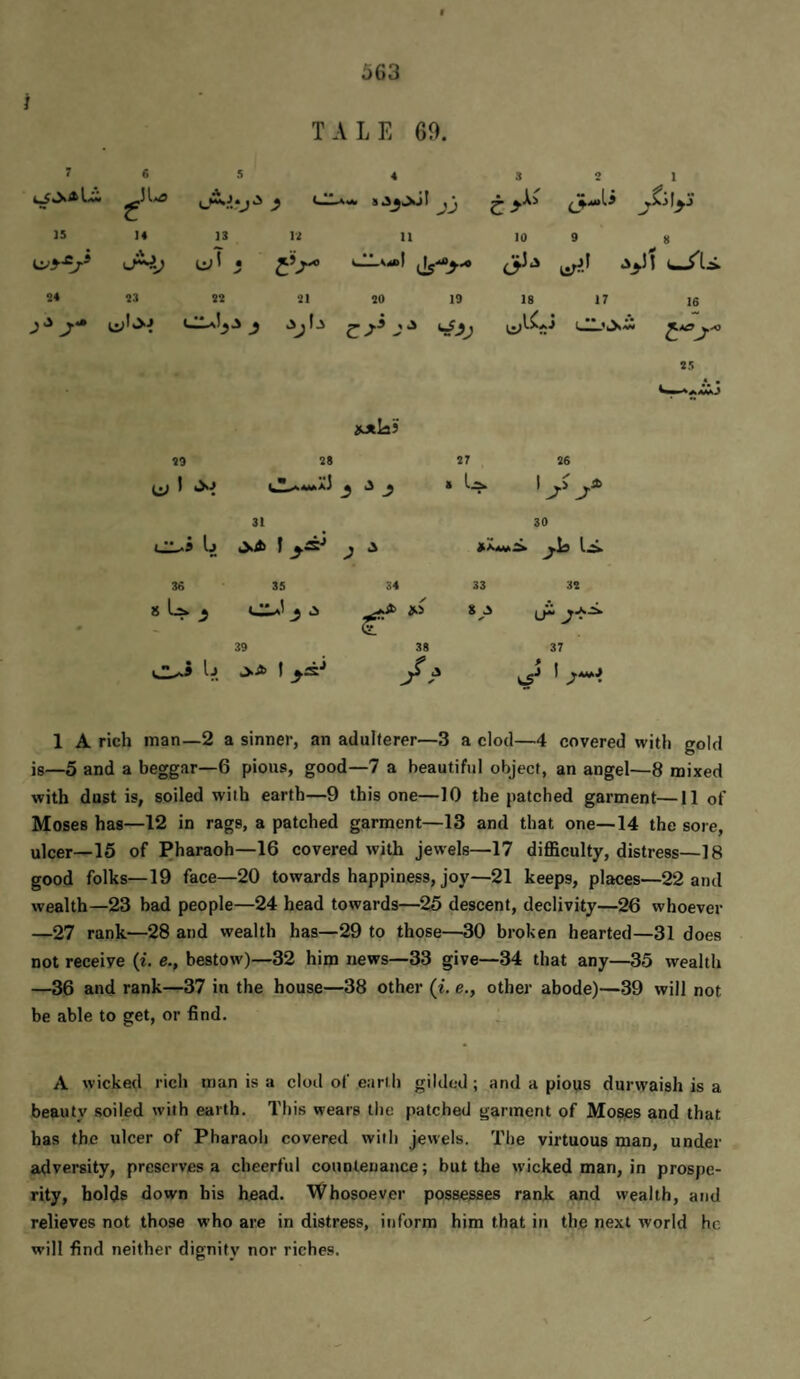 563
TALE 69.
7 6 5 4 3 2 1
توانگر فاسق کلوخ زر اندوده است و درویش صالح شاهد
15 14 13 12 11 10 9 8
خاک آلود این دلق موسی است مرقع و آن ریش فرعون
24 23 22 21 20 19 18 17 16
مرصع شدت نیکان روی در فرح دارد و دولت بدان سر در
25
نشیب
قطعه
29 28 27 26
هر کرا جاه و دولتست بدان
31 30
خاطر خسته در نخواهد یافت
36 35 34 33 32
خبرش ده که هیچ دولت و جاه
39 38 37
بسرای دگر نخواهد یافت
1 A rich man—2 a sinner, an adulterer—3 a clod—4 covered with gold
is—5 and a beggar—6 pious, good—7 a beautiful object, an angel—8 mixed
with dust is, soiled with earth—9 this one—10 the patched garment—11 of
Moses has—12 in rags, a patched garment—13 and that one—14 the sore,
ulcer—15 of Pharaoh—16 covered with jewels—17 difficulty, distress—18
good folks—19 face—20 towards happiness, joy—21 keeps, places—22 and
wealth—23 bad people—24 head towards—25 descent, declivity—26 whoever
—27 rank—28 and wealth has—29 to those—30 broken hearted—31 does
not receive (i. e., bestow)—32 him news—33 give—34 that any—35 wealth
—36 and rank—37 in the house—38 other (i. e., other abode)—39 will not
be able to get, or find.
A wicked rich man is a clod of earth gilded; and a pious durwaish is a
beauty soiled with earth. This wears the patched garment of Moses and that
has the ulcer of Pharaoh covered with jewels. The virtuous man, under
adversity, preserves a cheerful countenance; but the wicked man, in prospe-
rity, holds down his head. Whosoever possesses rank and wealth, and
relieves not those who are in distress, inform him that in the next world he
will find neither dignity nor riches.